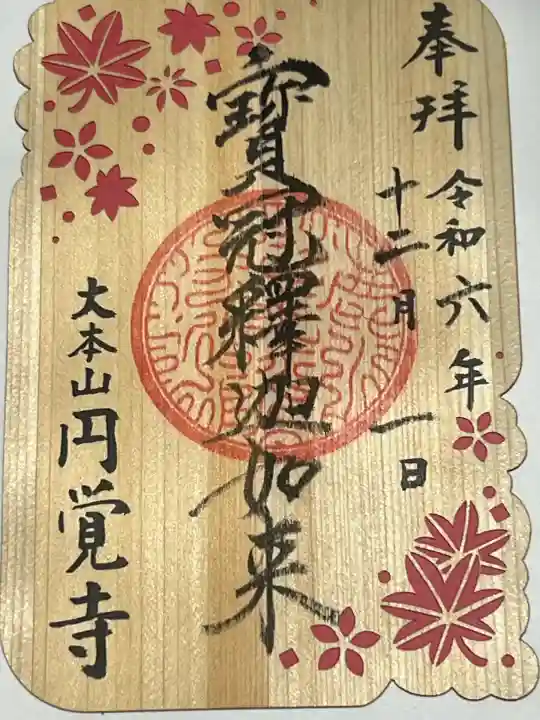 奉拝
令和六年
十二月一日
寳冠釋迦如来
大本山円覚寺